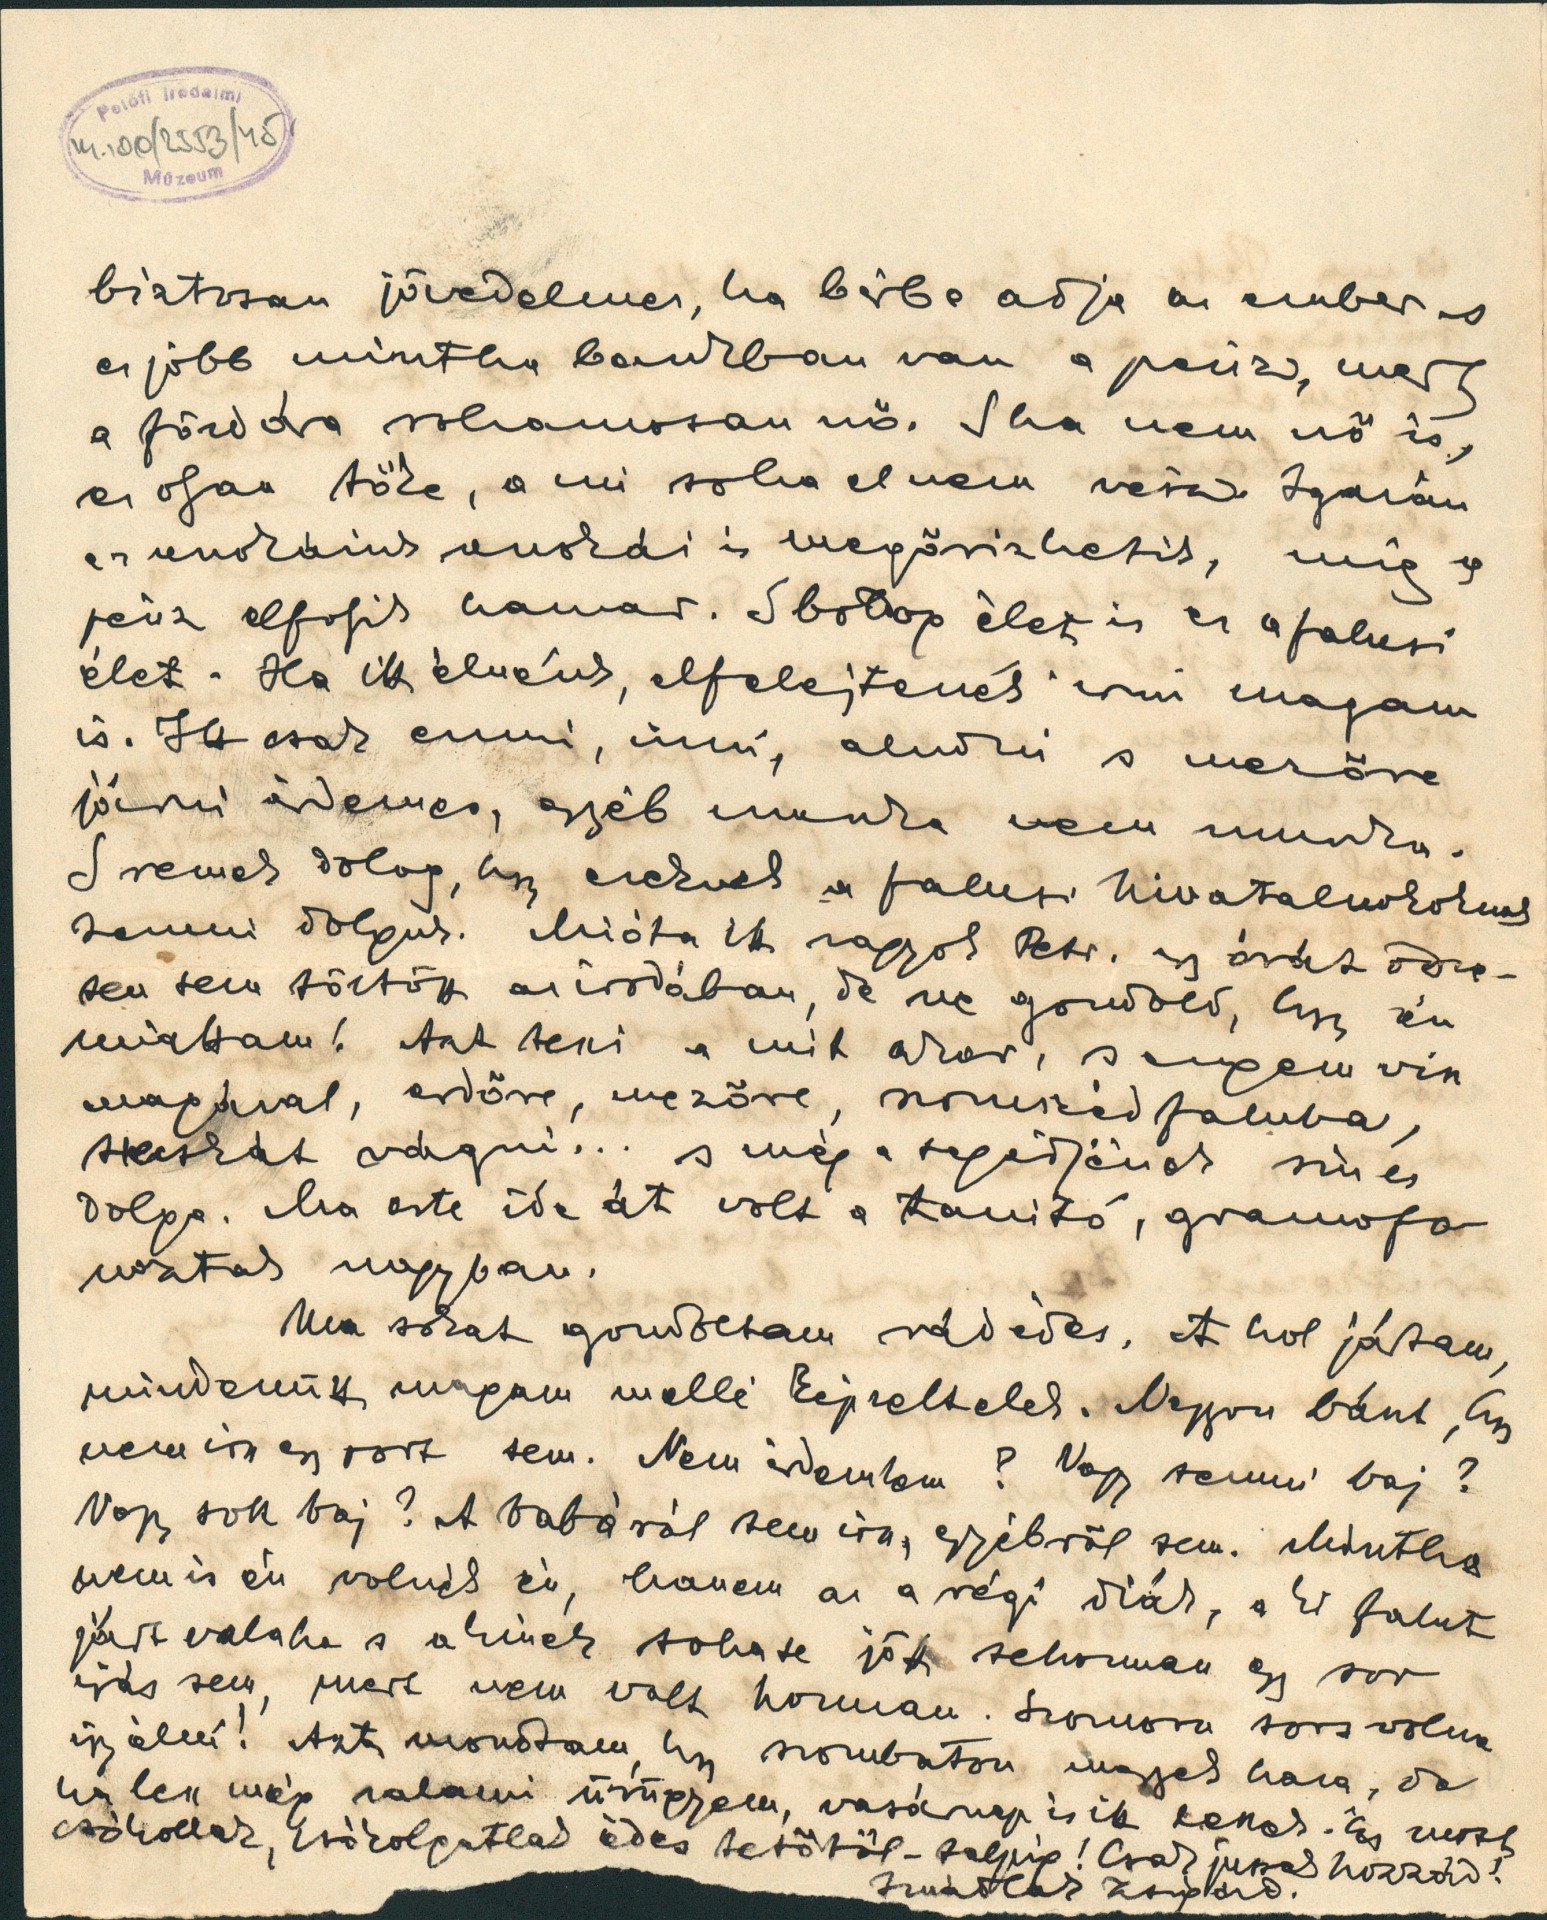 Petőfi Irodalmi
m.100/2553/45
Múzeum
biztosan jövedelmez, ha bérbe adja az ember s
ez jobb mintha bankban van a pénz, mert
a föld ára rohamosan nő. S ha nem nő is,
ez olyan tőke, a mi soha el nem vész. Igazán
az unokáink unokái is megőrizhetik, míg a
pénz elfolyik hamar. S boldog élet is ez a falusi
élet. Ha itt élnénk, elfelejtenék írni magam
is. Itt csak enni, inni, aludni s mezőre
járni érdemes, egyéb munka nem munka.
S remek dolog, hogy ezeknek a falusi hivatalnokoknak
semmi dolguk. Mióta itt vagyok Petr. egy órát össze-
sen sem töltött az irodában, de ne gondold, hogy én
miattam! Azt teszi a mit akar, s engem visz
magával, erdőre, mezőre, szomszéd faluba,
vágni... s még a segédjének sincs
dolga. Ma este ide át volt a tanító, gramofo
noztak nagyban.
Ma sokat gondoltam rád édes. A hol jártam,
mindenütt magam mellé képzeltelek. Nagyon bánt, hogy
nem írsz egy sort sem. Nem érdemlem? Vagy semmi baj?
Vagy sok baj? A babáról sem írsz, egyébről sem. Mintha
nem is én volnék én, hanem az a régi diák, a ki falut
járt valaha s akinek sohase jött sehonnan egy sor
írás sem, mert nem volt honnan. Szomorú sors volna
így élni! Azt mondtam, hogy szombaton megyek haza, de
ha lesz még valami ürügyem, vasárnap is itt leszek. És most
csókollak, csókolgatlak édes tetőtől-talpig! Csak jussak hozzád!
Imádlak Zsigád.